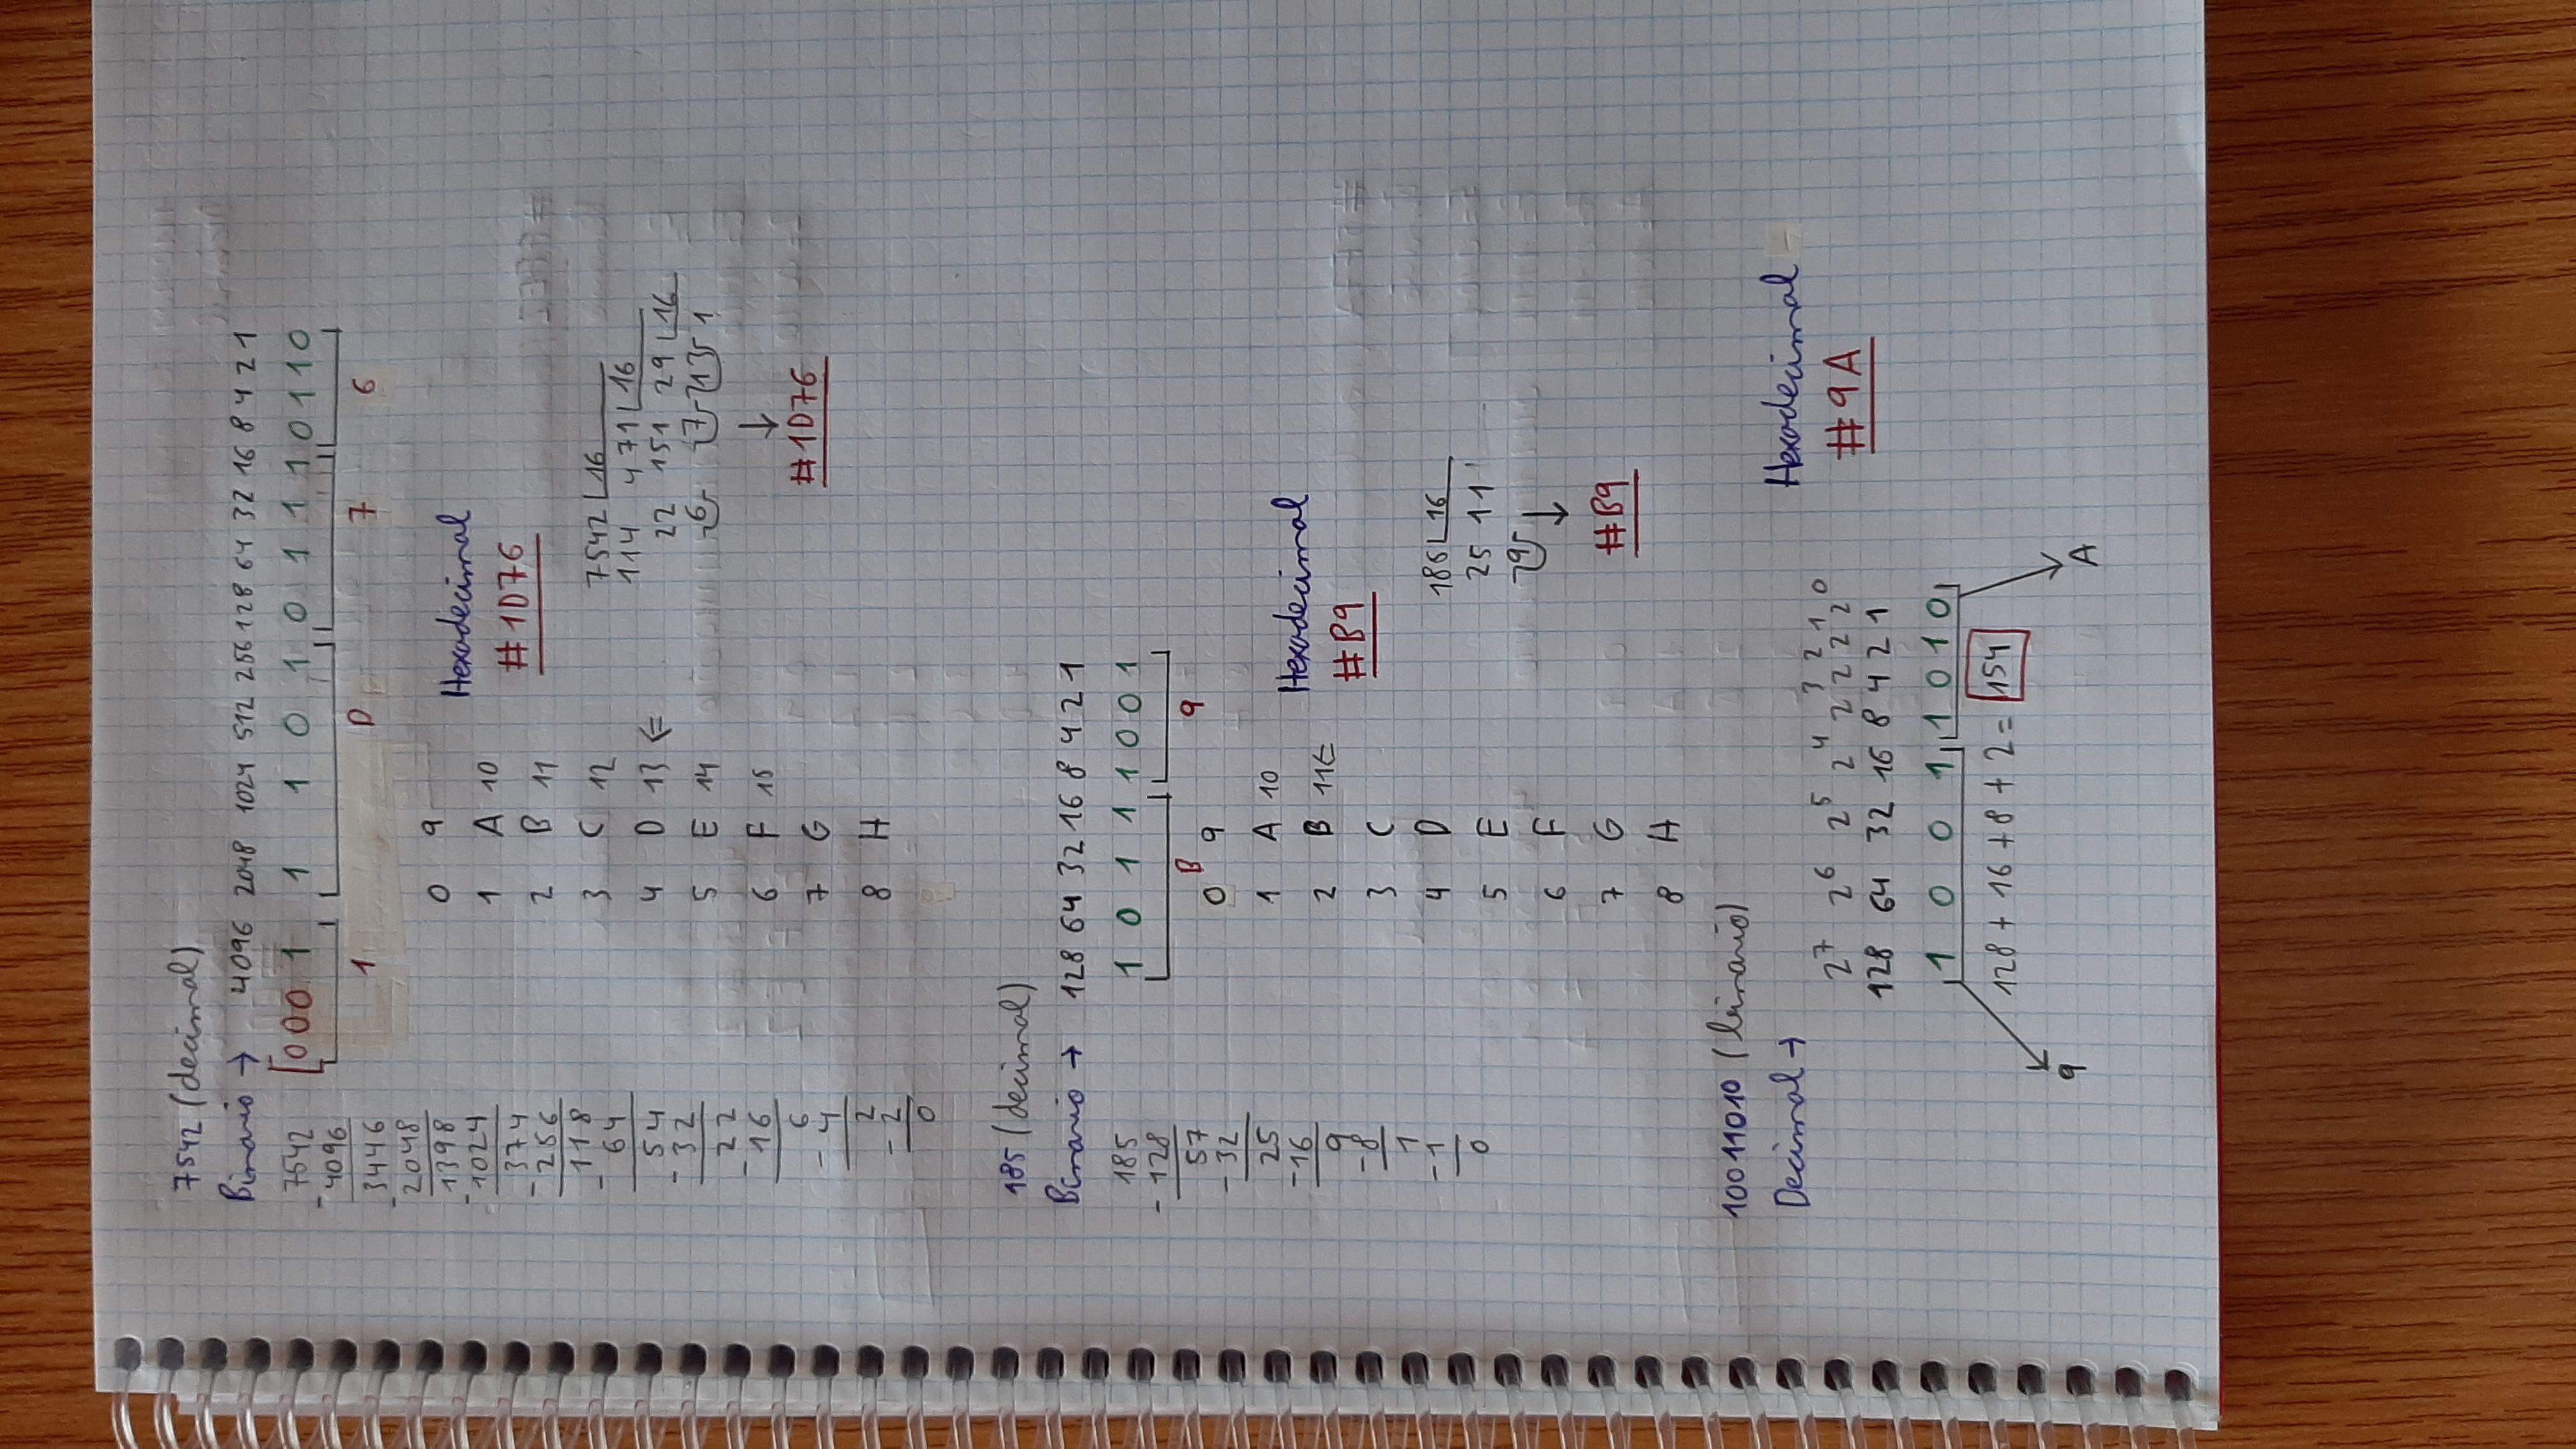 7542 (decimal)
Binario → 4096 2048 1024 512 256 128 64 32 16 8 4 2 1
7542 [0001 1 1 0 1 0 1 1 1 0110
- 4096
1 D 7 6
3446
- 2048
1398
- 1024
374
- 256
118
- 64
54
- 32
22
- 16
6
- 4
2
- 2
0
0 9
1 A 10
2 B 11
3 C 12
4 D 13 ⇐
5 E 14
6 F 15
7 G
8 H
Hexadecimal
#1D76
7542 16
114 471 16
22 151 29 16
6 7 13 1
↓
#1D76
185 (decimal)
Binario → 128 64 32 16 8 4 2 1
1 0 1 1 1 0 0 1
B 9
185
- 128
57
- 32
25
- 16
9
- 8
1
- 1
0
0 9
1 A 10
2 B 11 ⇐
3 C
4 D
5 E
6 F
7 G
8 H
Hexadecimal
#B9
185 16
25 11
9
↓
#B9
10011010 (binario)
Decimal →
2⁷ 2⁶ 2⁵ 2⁴ 2³ 2² 2¹ 2⁰
128 64 32 16 8 4 2 1
1 0 0 1 1 0 1 0
128 + 16 + 8 + 2 = 154
9 A
Hexadecimal
#9A